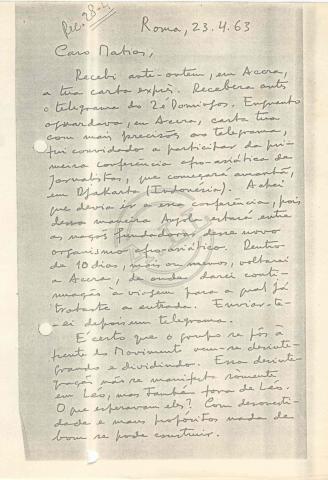 Rec. 28-4
Roma, 23.4.63
Caro Matias,
Recebi ante-ontem, em Accra,
a tua carta expres. Recebera antes
o telegrama do Zé Domingos. Enquanto
aguardava, em Accra, carta tua
com mais precisões ao telegrama,
fui convidado a participar da pri-
meira conferência afro-asiática de
Jornalistas, que começará amanhã,
em Djakarta (Indonesia). Achei
que devia ir a essa conferência, pois
dessa maneira Angola estará entre
as nações fundadoras desse novo
organismo afro-asiático. Dentro
de 10 dias, mais ou menos, voltarei
a Accra, de onde darei conti-
nuação à viagem para a qual já
trataste a entrada. Enviar-te-
ei depois um telegrama.
É certo que o grupo que se pôs à
frente do Movimento vem-se desinte-
grando e dividindo. Essa desinte-
gração não se manifesta somente
em Léo, mas também fora de Léo.
O que esperavam eles? Com desonesti-
dade e maus propósitos nada de
bom se pode construir.